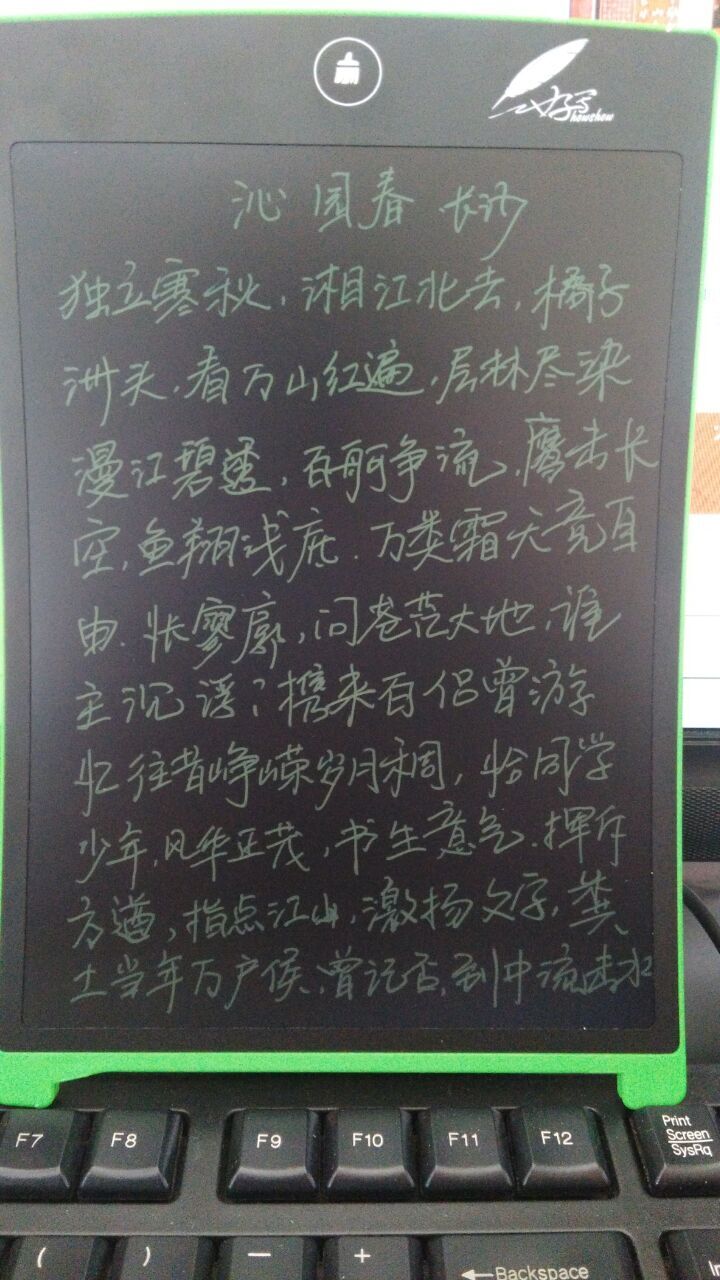 好写
howshow
沁园春 长沙
独立寒秋，湘江北去，橘子
洲头，看万山红遍，层林尽染
漫江碧透，百舸争流，鹰击长
空，鱼翔浅底．万类霜天竞自
由．怅寥廓，问苍茫大地，谁
主沉浮？携来百侣曾游
忆往昔峥嵘岁月稠，恰同学
少年，风华正茂，书生意气．挥斥
方遒，指点江山，激扬文字，粪
土当年万户侯、曾记否，到中流击水
F7 F8 F9 F10 F11 F12 Print
Screen
SysRq
( ) － + ←Backspace In